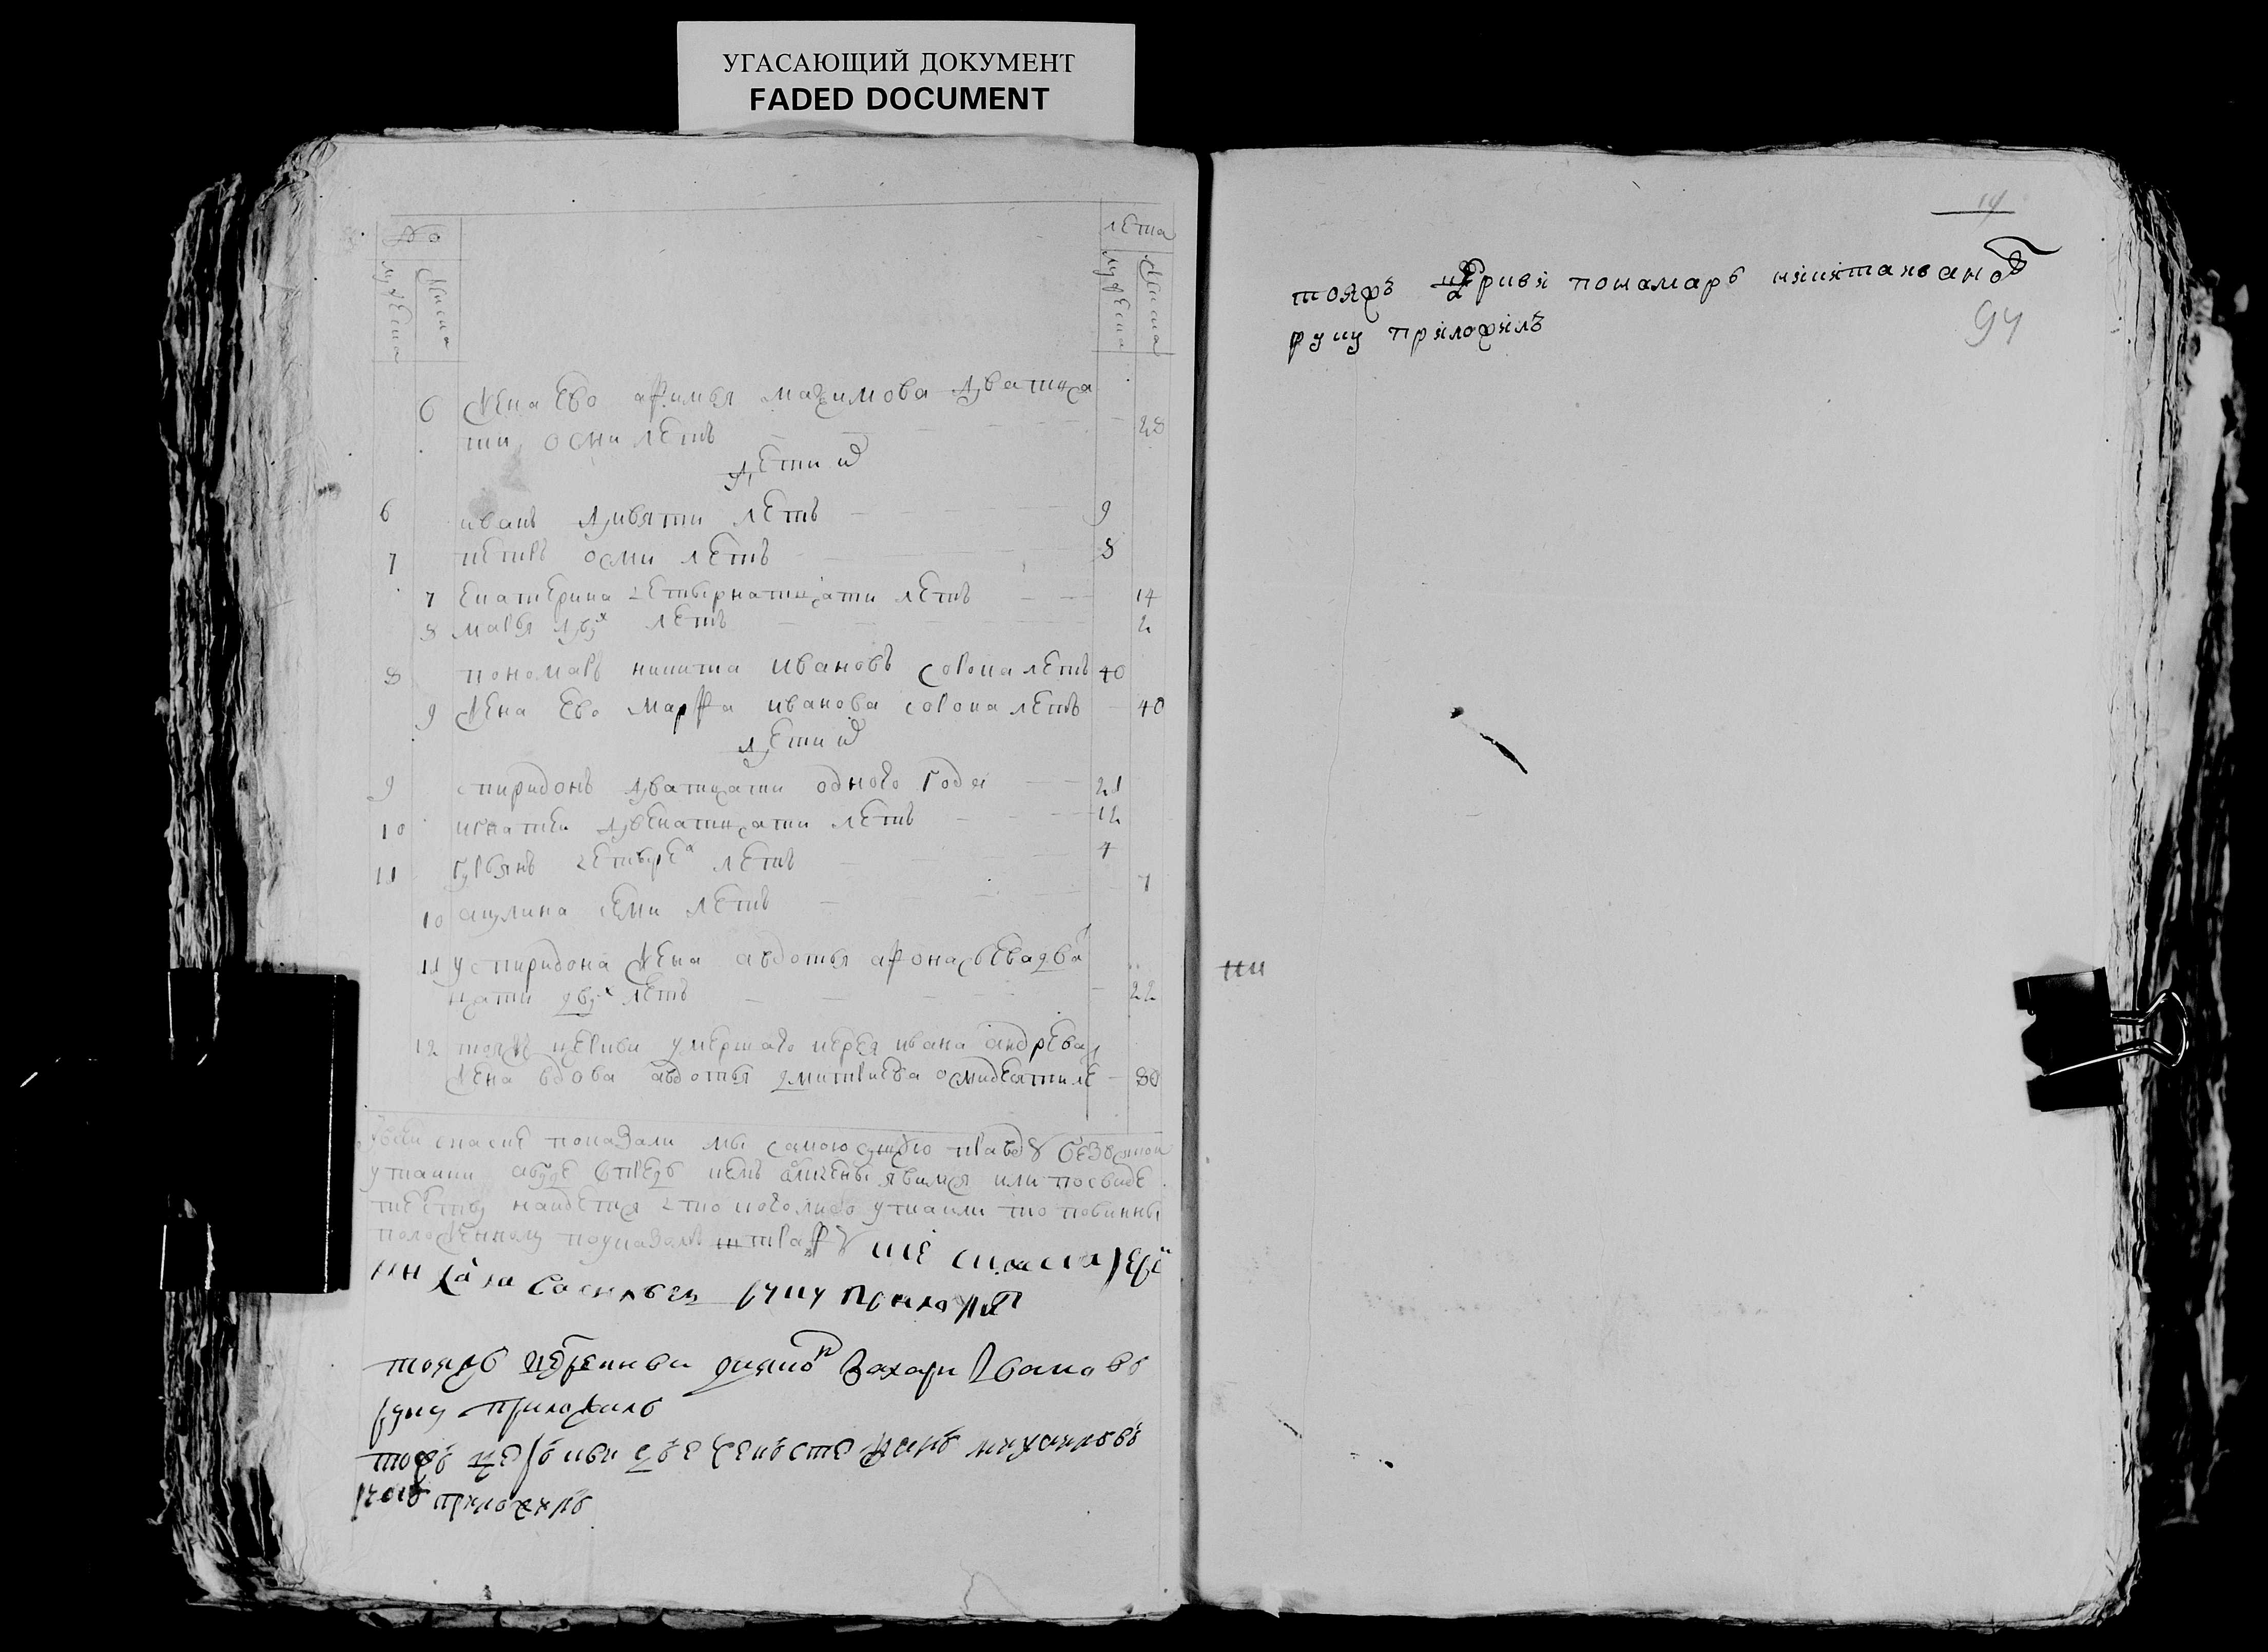 УГАСАЮЩИЙ ДОКУМЕНТ
FADED DOCUMENT
№
лета
мужеска
женска
мужеска
женска
6 жена ево афимья махимова дватца
ти осми летъ 28
дети их
6 иванъ дивяти летъ 9
7 петръ осми летъ 8
7 екатерина четырнатцати летъ 14
8 марья двух летъ 2
8 пономарь никита ивановъ сорока летъ 40
9 жена ево марфа иванова сорока летъ 40
дети их
9 спиридонъ дватцати одного года 21
10 игнатеи двенатцати летъ 12
11 гурьянъ четырех летъ 4
10 акулина семи летъ 7
11 у спиридона жена авдотья афонасьева два
цати двух летъ 22
12 тояж церкви умершаго иерея ивана андреева
жена вдова авдотья дмитриева осмидесяти ле 80
сказке показали мы самою сущую правду без всякой
утайки а буде впредь кемъ обличены явимся или по свиде
телству наидется что кого либо утаили то повинны
положенному по указомъ штрафу к сей скаске иерей
васильевъ руку приложил
тояжъ церкви дияконъ захари Ивановъ
руку приложилъ
тояжъ церъкви михаиловъ
руку приложилъ
14
тояжъ церкви пономарь никита иванов
руку приложилъ
94